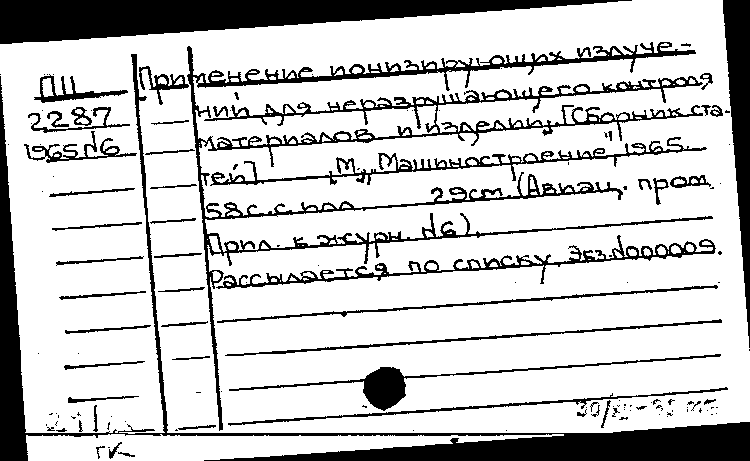 ПЦ
2287
1965 №6
Применение ионизирующих излуче-
ний для неразрушающего контроля
материалов и изделий. [Сборник ста-
тей]. М., "Машиностроение", 1965.
58 с. с илл. 29 см. (Авиац. пром.
Прил. к журн. №6).
Рассылается по списку. Экз. №000009.
ГК